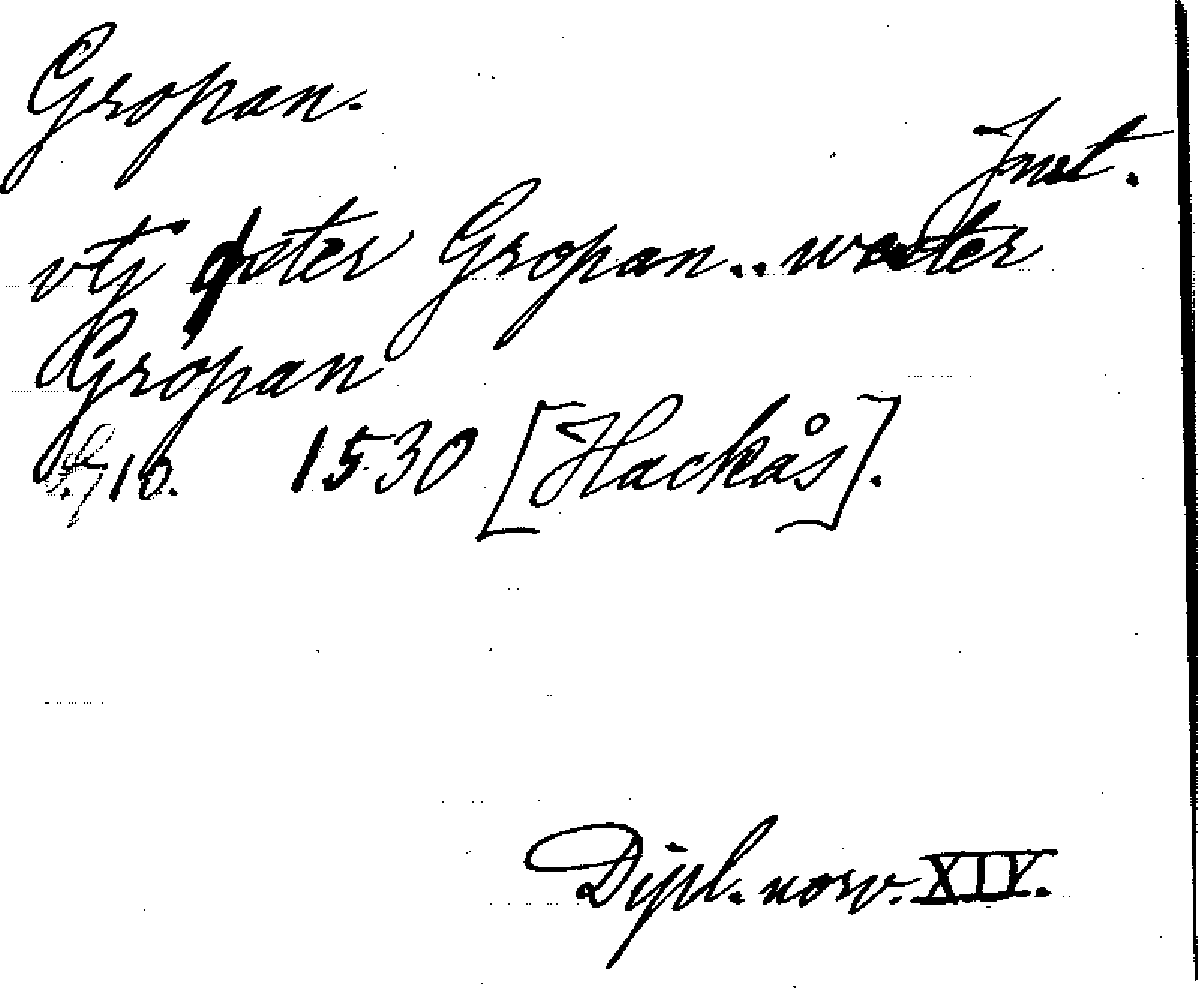 Gropan.
Jmt.
vtj øster Gropan.. wester
Gropan
710. 1530 [Hackås].
Dipl. norv. XIV.